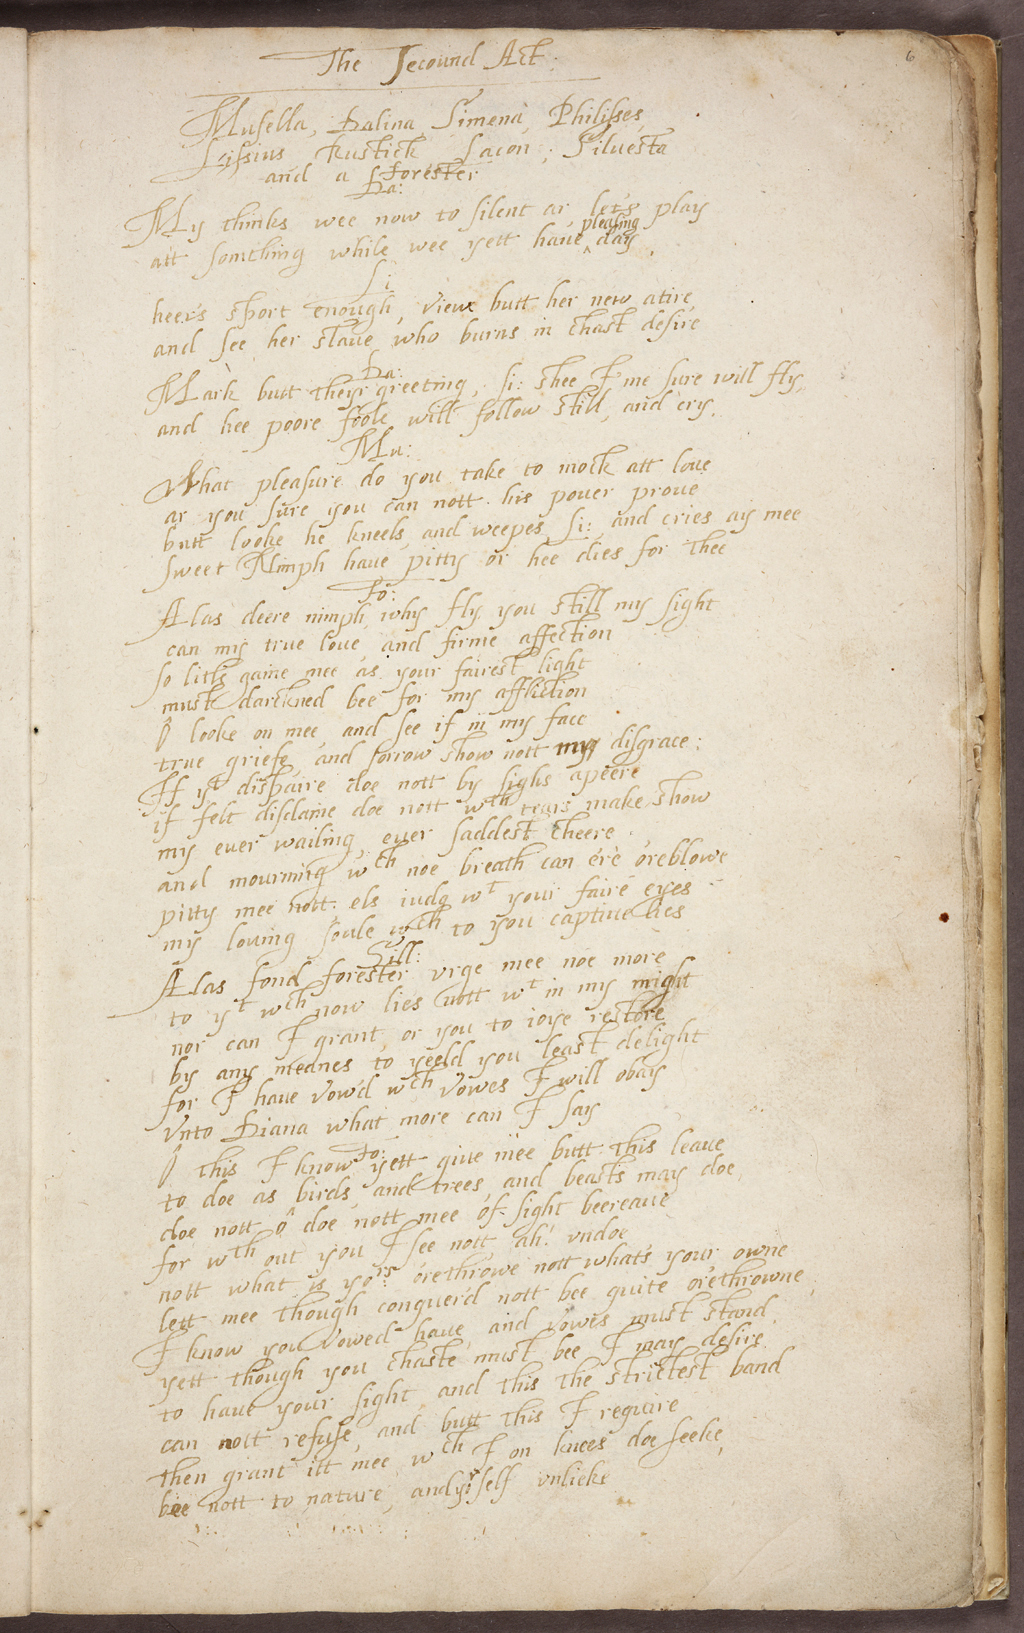 6
The Secound Act.
Musella, Dalina, Simena, Philisses,
Lissius Rustick, Lacon, Siluesta
and a forester
Da:
My thinks wee now to silent ar lets play
att somthing while wee yett haue pleasing day.
Si
heer's sport enough, view butt her new atire,
and see her slaue who burns in chast desire
Da:
Mark butt theyr greeting, si: shee I'me sure will fly,
and hee poore foole will follow still, and cry.
Mu:
What pleasure do you take to mock att loue
ar you sure you can nott his power proue
butt looke he kneels, and weepes, si: and cries ay mee
sweet Nimph haue pitty or hee dies for thee
Fo:
Alas deere nimph, why fly you still my sight
can my true loue, and firme affection
so litle gaine mee as your fairest light
must darckned bee for my affliction
ô looke on mee, and see if in my face
true griefe, and sorrow show nott my disgrace:
If yt dispaire doe nott by sighs apeere
if felt disdaine doe nott wth tears make show
my euer wailing, euer saddest cheere
and mourning wch noe breath can ere oreblowe
pitty mee nott, els iudg wt your faire eyes
my louing soule wch to you captiue lies
Sill:
Alas fond forester vrge mee noe more
to yt wch now lies nott wt in my might
nor can I grant, or you to ioye restore
by any meanes to yeeld you least delight
for I haue vow'd wch vowes I will obay
Vnto Diana what more can I say
Fo:
ô this I know yett giue mee butt this leaue
to doe as birds, and trees, and beasts may doe
doe nott ô doe nott mee of sight beereaue
for wth out you I see nott, ah! vndoe
nott what is yors: orethrowe nott whats your owne
lett mee though conquer'd nott bee quite orethrowne,
I know you vowed haue, and vowes must stand,
yett though you chaste must bee I may desire
to haue your sight, and this the strictest band
can nott refuse, and butt this I require
then grant itt mee, wch I on knees doe seeke,
bee nott to nature, and yr self vnlieke